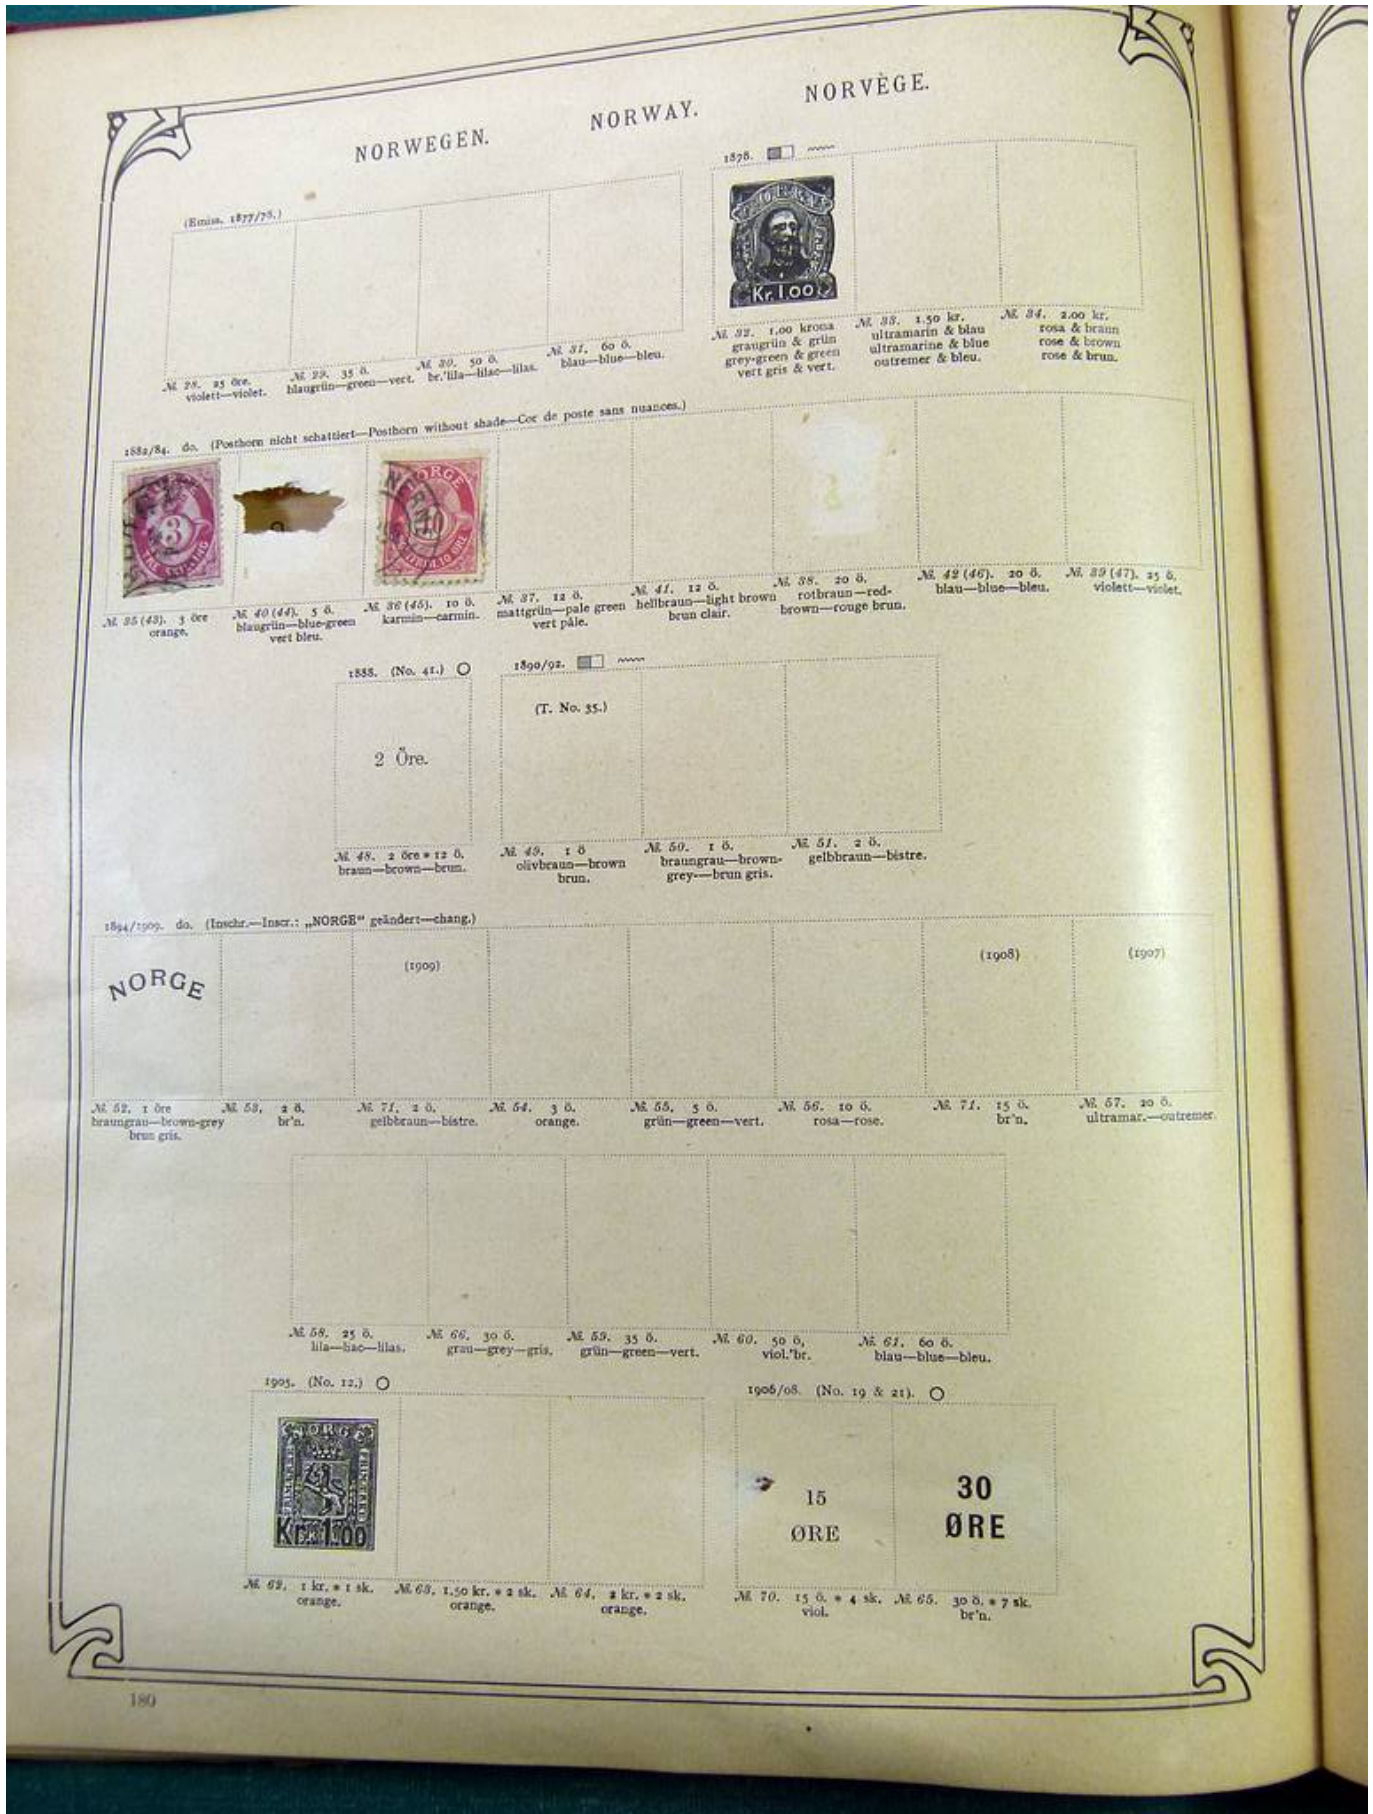 NORWEGEN.
NORWAY.
NORVÈGE.
(Emiss. 1877/78.)
1878.
Kr. 1.00
№ 28. 25 öre.
violett—violet.
№ 29. 35 ö.
blaugrün—green—vert.
№ 30. 50 ö.
br.'lila—lilac—lilas.
№ 31. 60 ö.
blau—blue—bleu.
№ 32. 1.00 krona
graugrün & grün
grey-green & green
vert gris & vert.
№ 33. 1.50 kr.
ultramarin & blau
ultramarine & blue
outremer & bleu.
№ 34. 2.00 kr.
rosa & braun
rose & brown
rose & brun.
1882/84. do. (Posthorn nicht schattiert—Posthorn without shade—Cor de poste sans nuances.)
3
TRE SKILLING
NORGE
10
№ 35 (43). 3 öre
orange.
№ 40 (44). 5 ö.
blaugrün—blue-green
vert bleu.
№ 36 (45). 10 ö.
karmin—carmin.
№ 37. 12 ö.
mattgrün—pale green
vert pâle.
№ 41. 12 ö.
hellbraun—light brown
brun clair.
№ 38. 20 ö.
rotbraun—red-
brown—rouge brun.
№ 42 (46). 20 ö.
blau—blue—bleu.
№ 39 (47). 25 ö.
violett—violet.
1888. (No. 41.)
2 Öre.
№ 48. 2 öre * 12 ö.
braun—brown—brun.
1890/92.
(T. No. 35.)
№ 49. 1 ö
olivbraun—brown
brun.
№ 50. 1 ö.
braungrau—brown-
grey—brun gris.
№ 51. 2 ö.
gelbbraun—bistre.
1894/1909. do. (Inschr.—Inscr.: „NORGE" geändert—chang.)
NORGE
(1909)
(1908)
(1907)
№ 52. 1 öre
braungrau—brown-grey
brun gris.
№ 53. 2 ö.
br'n.
№ 71. 2 ö.
gelbbraun—bistre.
№ 54. 3 ö.
orange.
№ 55. 5 ö.
grün—green—vert.
№ 56. 10 ö.
rosa—rose.
№ 71. 15 ö.
br'n.
№ 57. 20 ö.
ultramar.—outremer.
№ 58. 25 ö.
lila—liac—lilas.
№ 66. 30 ö.
grau—grey—gris.
№ 59. 35 ö.
grün—green—vert.
№ 60. 50 ö,
viol.'br.
№ 61. 60 ö.
blau—blue—bleu.
1905. (No. 12.)
NORGE
Kr. 1.00
№ 62. 1 kr. * 1 sk.
orange.
№ 63. 1.50 kr. * 2 sk.
orange.
№ 64. 2 kr. * 2 sk.
orange.
1906/08. (No. 19 & 21).
15
ØRE
30
ØRE
№ 70. 15 ö. * 4 sk.
viol.
№ 65. 30 ö. * 7 sk.
br'n.
180